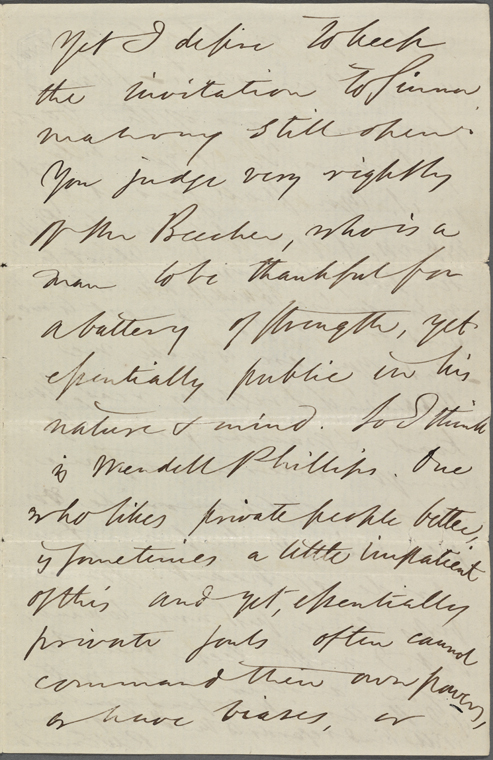 Yet I desire to keep
the invitation to
still open.
You judge very rightly
of Mr Beecher, who is a
man to be thankful for
a battery of strength, yet
essentially public in his
nature & mind. So I think
is Wendell Phillips. One
who likes private people better,
is sometimes a little impatient
of this and yet, essentially
private souls often cannot
command their own powers,
or have biases, or